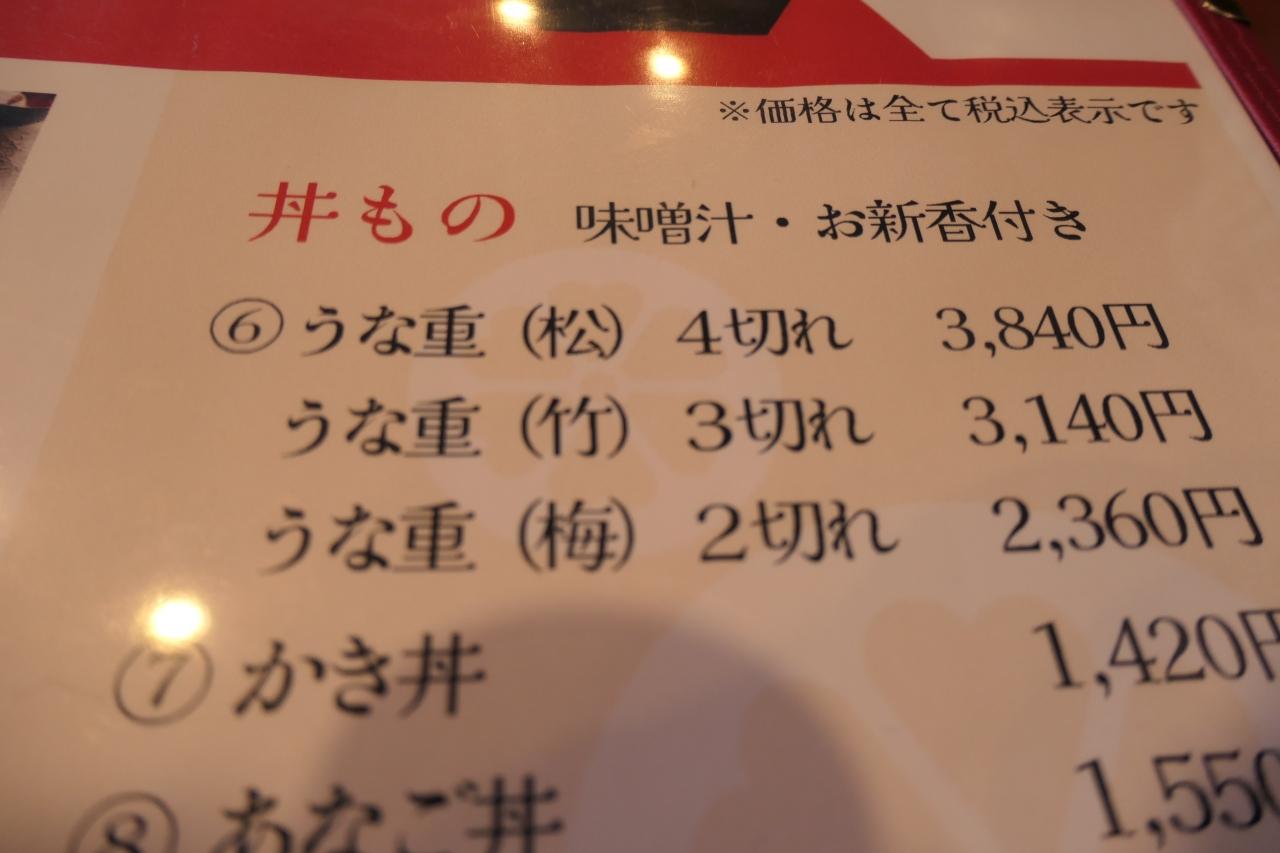 ※価格は全て税込表示です
丼もの 味噌汁・お新香付き
⑥うな重（松） 4切れ 3,840円
うな重（竹） 3切れ 3,140円
うな重（梅） 2切れ 2,360円
⑦かき丼 1,420円
⑧あなご丼 1,550